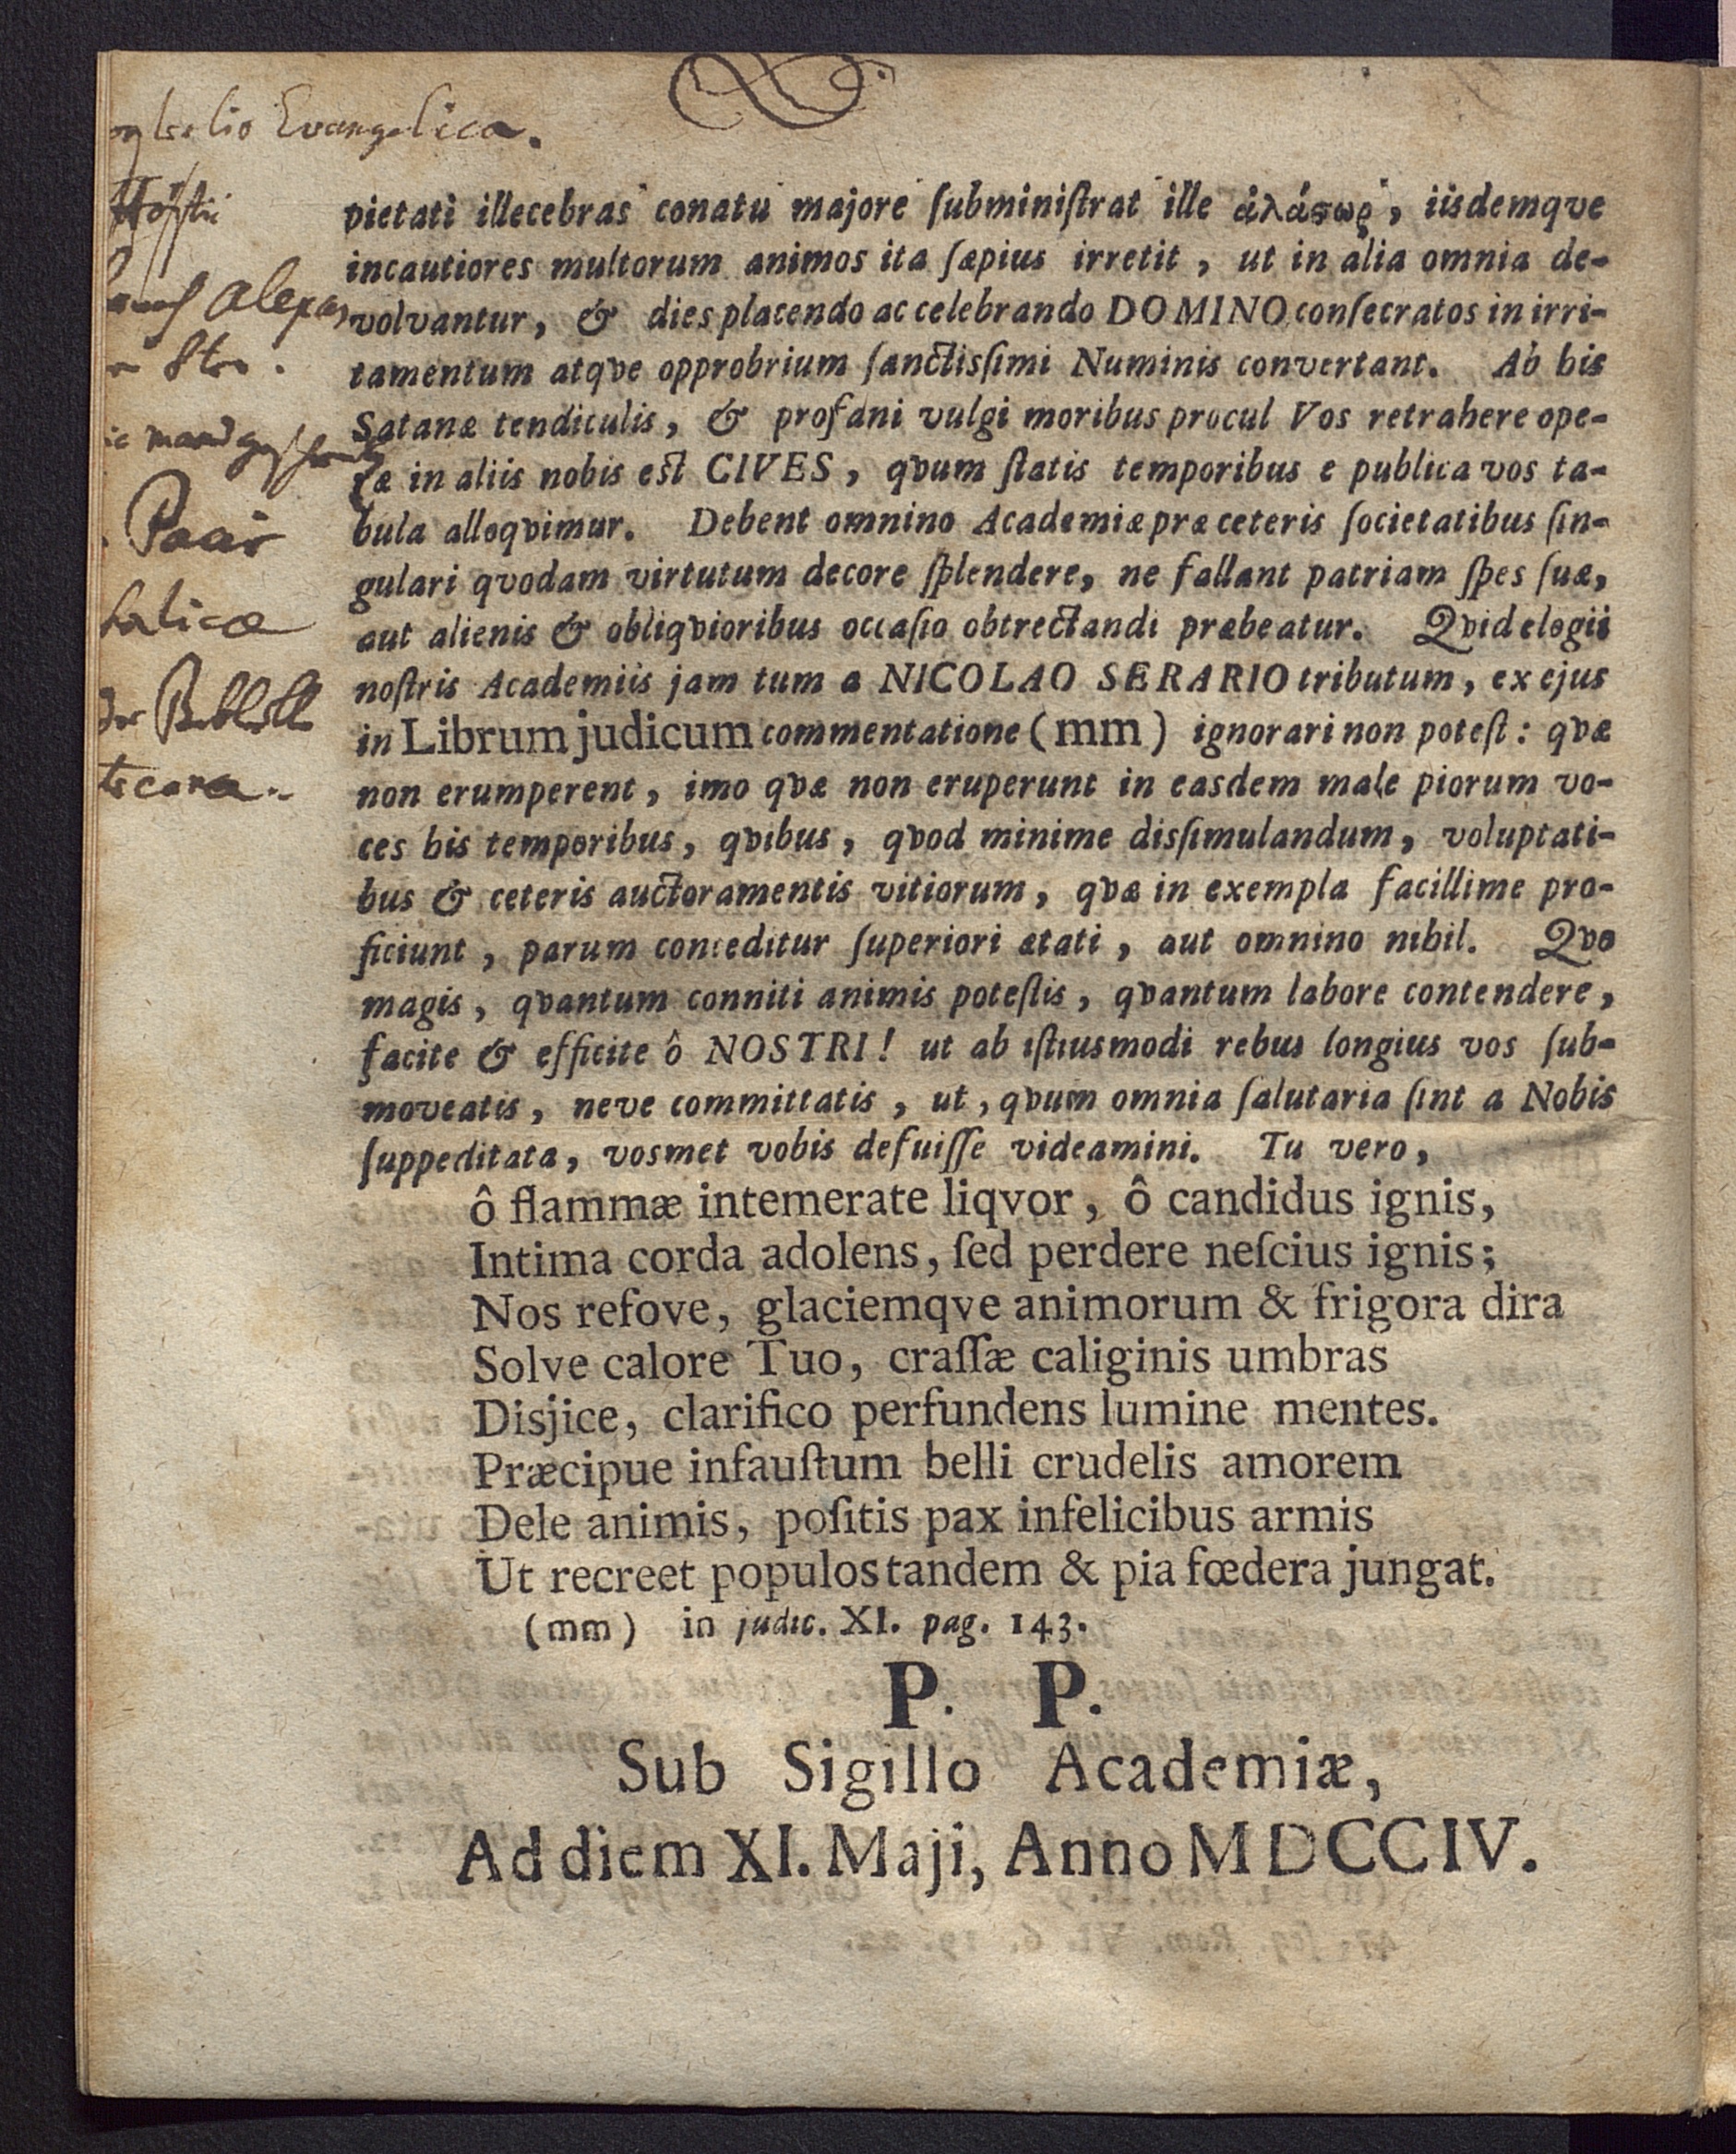 Evangelica.
pietati illecebras conatu majore ſubminiſtrat ille ἀλάϛωρ, iisdemqve
incautiores multorum animos ita ſæpius irretit, ut in alia omnia de-
volvantur, & dies placendo ac celebrando DOMINO conſecratos in irri-
tamentum atqve opprobrium ſanctisſimi Numinis convertant. Ab his
Satanæ tendiculis, & profani vulgi moribus procul Vos retrahere ope-
ræ in aliis nobis est CIVES, qvum ſtatis temporibus e publica vos ta-
bula alloqvimur. Debent omnino Academiæ præ ceteris ſocietatibus ſin-
gulari qvodam virtutum decore ſplendere, ne fallant patriam ſpes ſuæ,
aut alienis & obliqvioribus occaſio obtrectandi præbeatur. Qvid elogii
noſtris Academiis jam tum a NICOLAO SERARIO tributum, ex ejus
in Librum judicum commentatione (mm) ignorari non poteſt: qvæ
non erumperent, imo qvæ non eruperunt in easdem male piorum vo-
ces his temporibus, qvibus, qvod minime disſimulandum, voluptati-
bus & ceteris auctoramentis vitiorum, qvæ in exempla facillime pro-
ficiunt, parum conceditur ſuperiori ætati, aut omnino nihil. Qvo
magis, qvantum conniti animis poteſtis, qvantum labore contendere,
facite & efficite ô NOSTRI! ut ab iſtiusmodi rebus longius vos ſub-
moveatis, neve committatis, ut, qvum omnia ſalutaria ſint a Nobis
ſuppeditata, vosmet vobis defuiſſe videamini. Tu vero,
ô flammæ intemerate liqvor, ô candidus ignis,
Intima corda adolens, ſed perdere neſcius ignis;
Nos refove, glaciemqve animorum & frigora dira
Solve calore Tuo, craſſæ caliginis umbras
Disjice, clarifico perfundens lumine mentes.
Præcipue infauſtum belli crudelis amorem
Dele animis, poſitis pax infelicibus armis
Ut recreet populos tandem & pia fœdera jungat.
(mm) in judic. XI. pag. 143.
P. P.
Sub Sigillo Academiæ,
Ad diem XI. Maji, Anno MDCCIV.